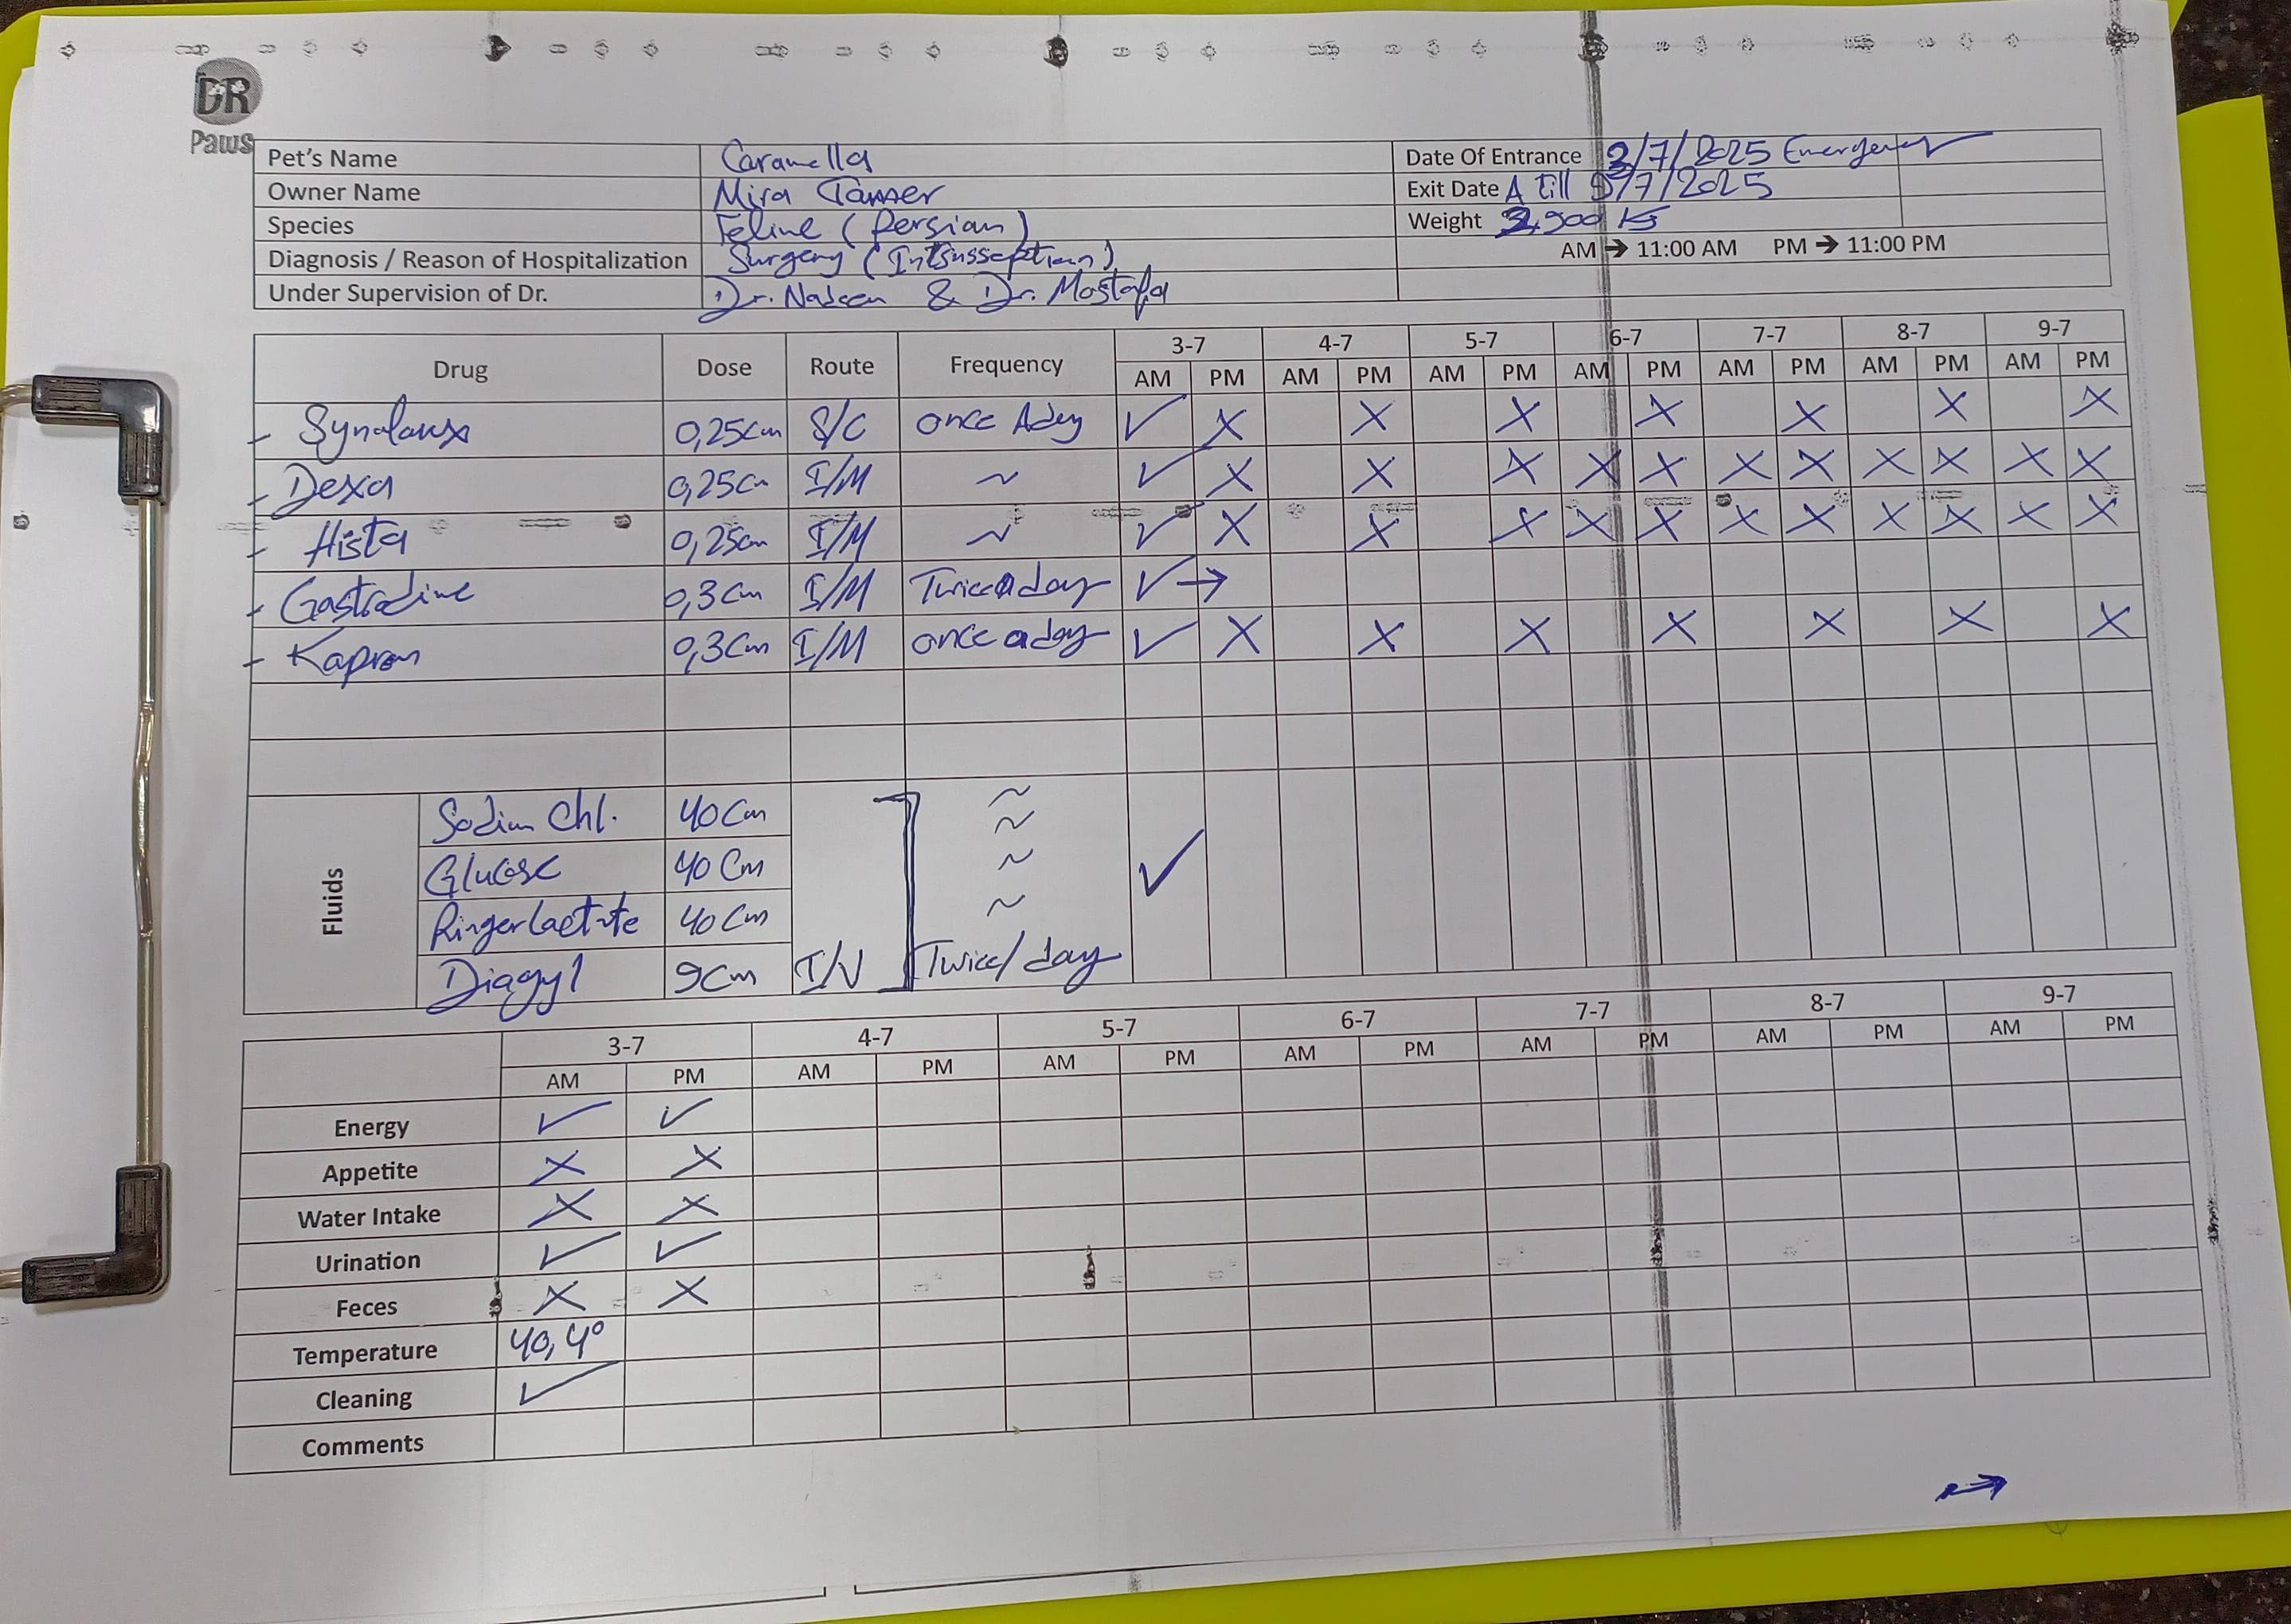 DR
Paws
Pet's Name Caramella Date Of Entrance 3/7/2025 Emergency
Owner Name Mira Tamer Exit Date A till 9/7/2025
Species Feline (Persian) Weight 2,900 Kg
Diagnosis / Reason of Hospitalization Surgery (Intussseption) AM → 11:00 AM PM → 11:00 PM
Under Supervision of Dr. Dr. Nadeen & Dr. Mostafa
Drug Dose Route Frequency 3-7 4-7 5-7 6-7 7-7 8-7 9-7
AM PM AM PM AM PM AM PM AM PM AM PM AM PM
- Synolaux 0,25cm S/C once Aday ✓ X X X X X X X
- Dexa 0,25cm I/M ~ ✓ X X X X X X X X X X X
- Hista 0,25cm I/M ~ ✓ X X X X X X X X X X X
- Gastrodine 0,3cm I/M Twice a day ✓ →
- Kapron 0,3cm I/M once a day ✓ X X X X X X X
Fluids
Sodium Chl. 40 Cm ~
~
Glucose 40 Cm ~ ✓
Ringer lactate 40 Cm ~
Diagyl 9cm I/V Twice/day
3-7 4-7 5-7 6-7 7-7 8-7 9-7
AM PM AM PM AM PM AM PM AM PM AM PM AM PM
Energy ✓ ✓
Appetite X X
Water Intake X X
Urination ✓ ✓
Feces X X
Temperature 40,4°
Cleaning ✓
Comments
→